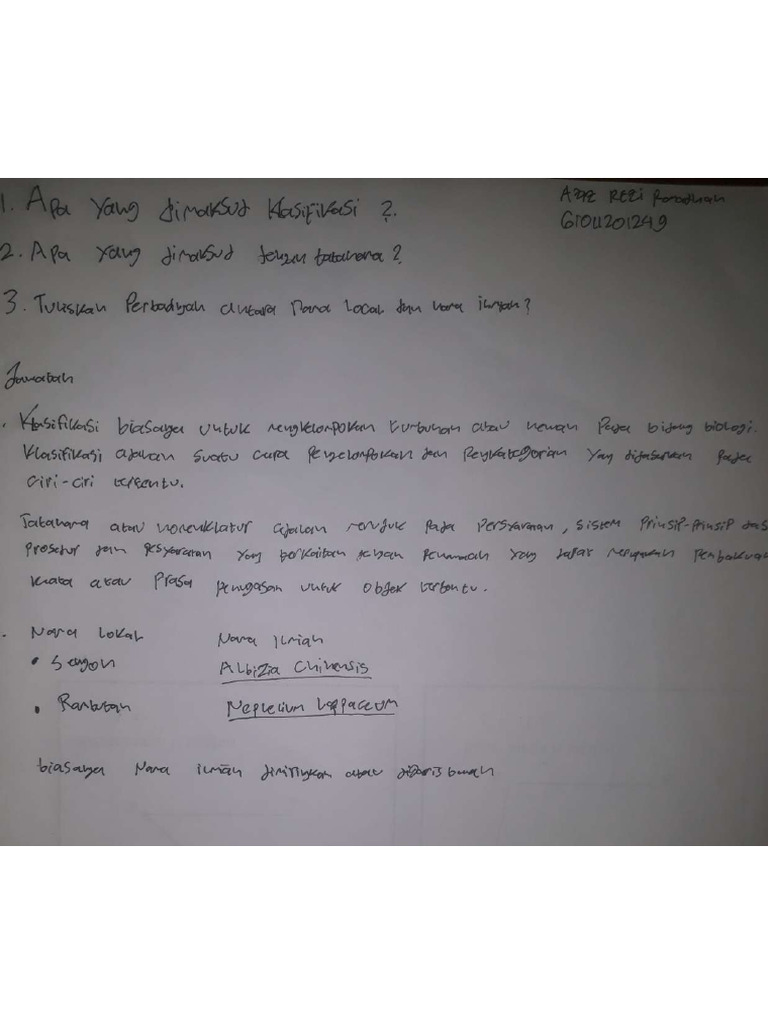 1. Apa yang dimaksud klasifikasi ?.
Aziz Rezi Ramadhan
G1011201249
2. Apa yang dimaksud dengan tatanama ?
3. Tuliskan Perbedaan antara nama local dan nama ilmiah ?
Jawaban
. Klasifikasi biasanya untuk mengkelompokan tumbuhan atau hewan Pada bidang biologi.
Klasifikasi adalah suatu cara pengelompokan dan Pengkategorian yang didasarkan pada
ciri-ciri tertentu.
Tatanama atau nomenklatur adalah merujuk pada Persyaratan, sistem Prinsip-Prinsip das
Prosedur dan Persyaratan yang berkaitan dengan Penamaan yang dapat merupakan Pembakuan
kata atau Prasa penugasan untuk objek tertentu.
. Nama Lokal Nama Ilmiah
• Sengon Albizia Chinensis
• Rambutan Nephelium Lappaceum
biasanya Nama ilmiah dimiringkan atau digaris bawah